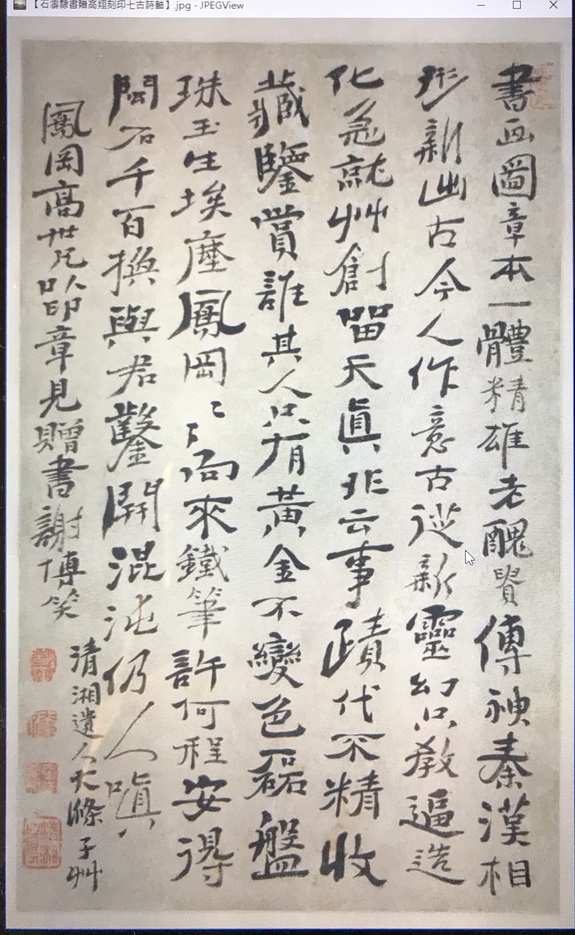 【石濤隸書贈高翔刻印七古詩軸】.jpg - JPEGView
書画圖章本一體精雄老醜貴傳神秦漢相
形新出古今人作意古從新靈幻只教逼造
化急就艸創留天真非云事蹟代不精收
藏鑒賞誰其人只有黃金不變色磊盤
珠玉生埃塵鳳岡〻〻向來鐵筆許何程安得
閩石千百換與君鑿開混沌仍人嗔
鳳岡高世兄以印章見贈書謝博笑
清湘遺人大滌子艸